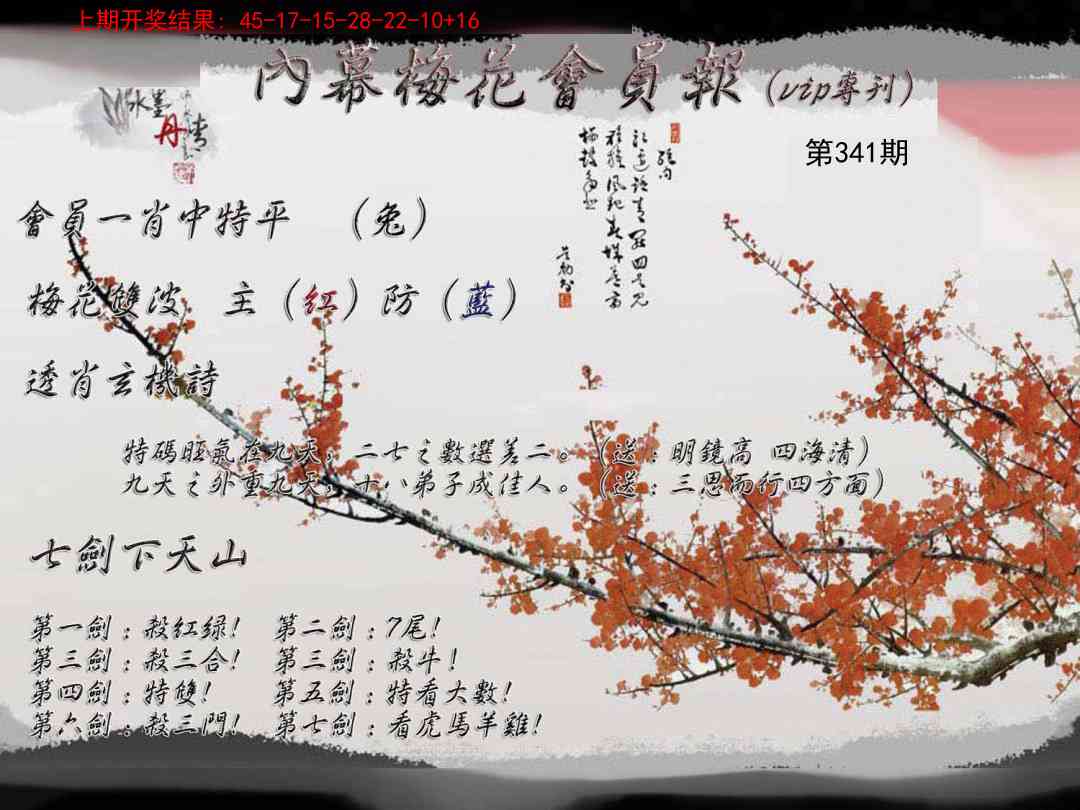 上期开奖结果: 45-17-15-28-22-10+16
內幕梅花會員報(vip專刊)
水墨
丹青
第341期
會員一肖中特平 (兔)
梅花雙波 主(红)防(藍)
透肖玄機詩
特碼旺氣在九天,二七之數選差二。(送:明鏡高 四海清)
九天之外重九天,十八弟子成佳人。(送:三思而行四方面)
七劍下天山
第一劍:殺红绿! 第二劍:7尾!
第三劍:殺三合! 第三劍:殺牛!
第四劍:特雙! 第五劍:特看大數!
第六劍:殺三門! 第七劍:看虎馬羊雞!